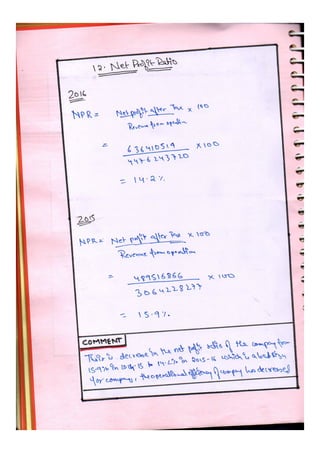 12. Net Profit Ratio
2016
NPR = Net profit after Tax x 100
Revenue from operation
= 636410514 x 100
4476243720
= 14.2%
2015
NPR = Net profit after Tax x 100
Revenue from operation
= 489516866 x 100
3064228277
= 15.9%
COMMENT
There is decrease in the net profit ratio of the company from
15.9% in 2014-15 to 14.2% in 2015-16 which is a bad
for company, the operational efficiency of company has decreased